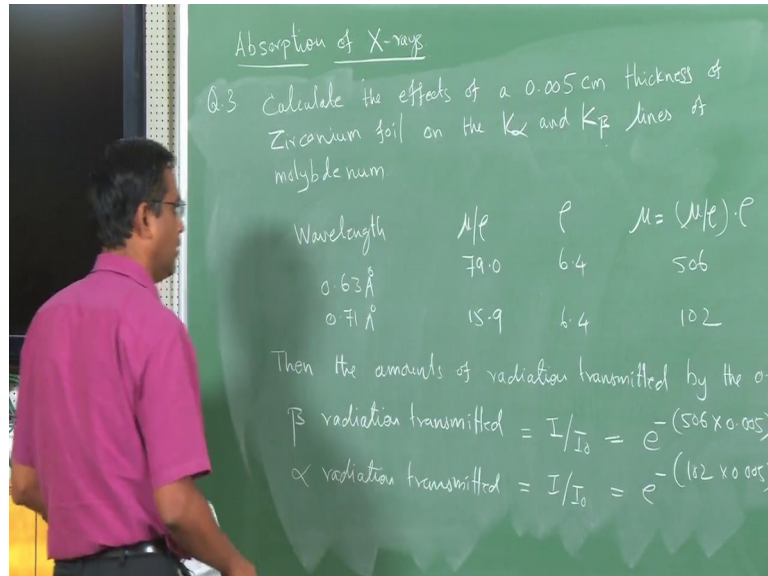 Absorption of X-rays
Q.3 Calculate the effects of a 0.005 cm thickness of
Zirconium foil on the Kα and Kβ lines of
molybdenum
Wavelength μ/ρ ρ μ = (μ/ρ)·ρ
0.63Å 79.0 6.4 506
0.71Å 15.9 6.4 102
Then the amounts of radiation transmitted by the 0.
β radiation transmitted = I/I₀ = e^-(506 × 0.005)
α radiation transmitted = I/I₀ = e^-(102 × 0.005)